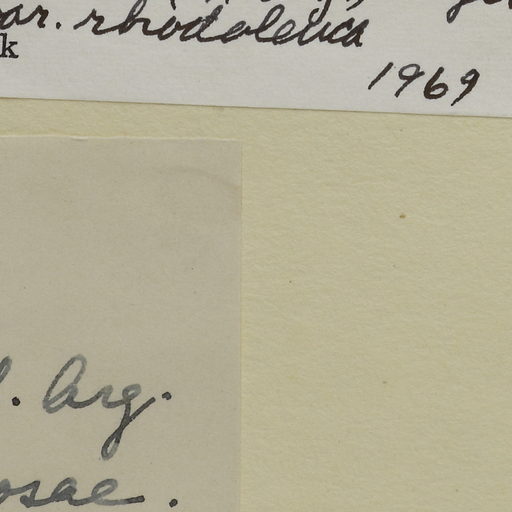 ar. rhodoleuca
k
1969
. Arg.
osae.